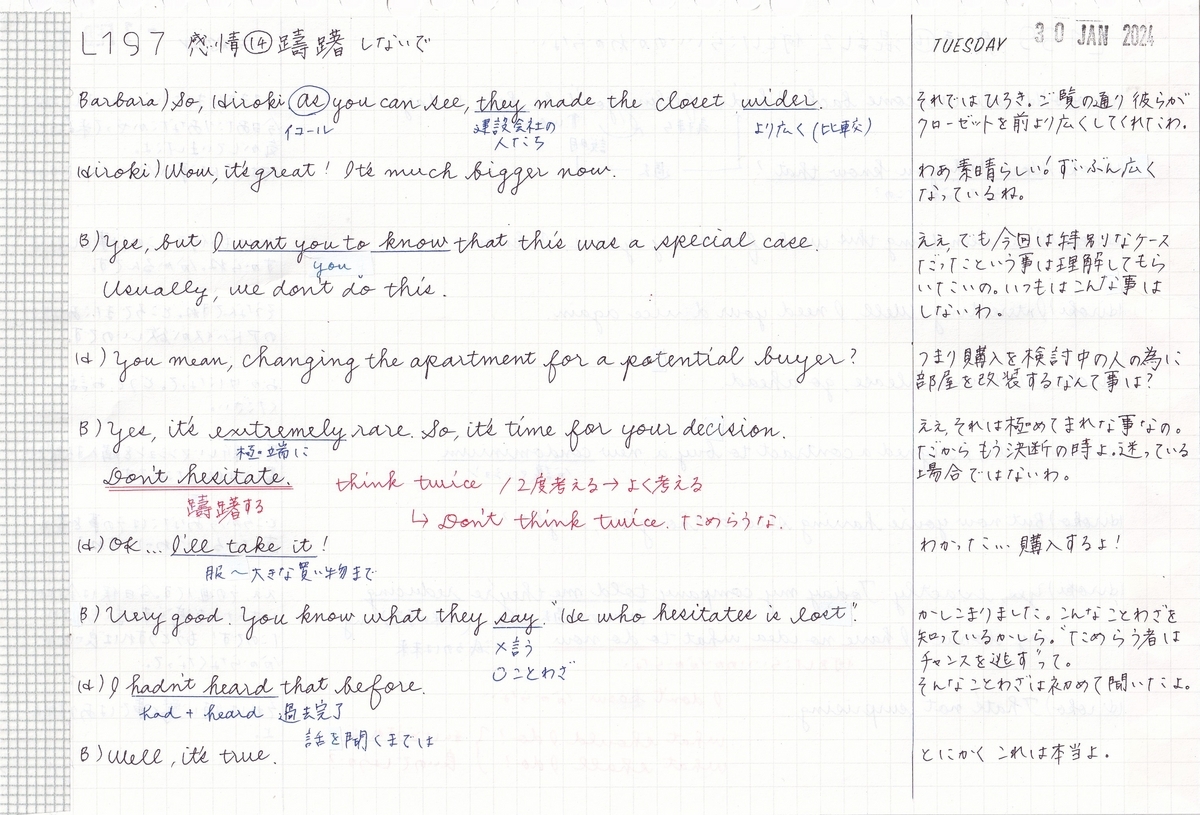 L197 感情⑭躊躇しないで
TUESDAY 30 JAN 2024
Barbara) So, Hiroki as you can see, they made the closet wider.
イコール
建設会社の
人たち
より広く (比較)
それではひろき。ご覧の通り 彼らが
クローゼットを前より広くしてくれたわ。
Hiroki) Wow, it's great! It's much bigger now.
わあ 素晴らしい! ずいぶん広く
なっているね。
B) Yes, but I want you to know that this was a special case.
you
Usually, we don't do this.
ええ, でも今回は特別なケース
だったという事は理解してもら
いたいの。いつもはこんな事は
しないわ。
H) You mean, changing the apartment for a potential buyer?
つまり購入を検討中の人の為に
部屋を改装するなんて事は?
B) Yes, it's extremely rare. So, it's time for your decision.
極端に
Don't hesitate.
躊躇する
think twice /2度考える→よく考える
↳ Don't think twice. ためらうな.
ええ, それは極めてまれな事なの。
だから もう決断の時よ. 迷っている
場合ではないわ。
H) OK... I'll take it!
服〜大きな買い物まで
わかった… 購入するよ!
B) Very good. You know what they say. "He who hesitates is lost".
×言う
○ことわざ
かしこまりました。こんなことわざを
知っているかしら。"ためらう者は
チャンスを逃す"って。
H) I hadn't heard that before.
had + heard 過去完了
話を聞くまでは
そんなことわざは初めて聞いたよ。
B) Well, it's true.
とにかく これは本当よ。